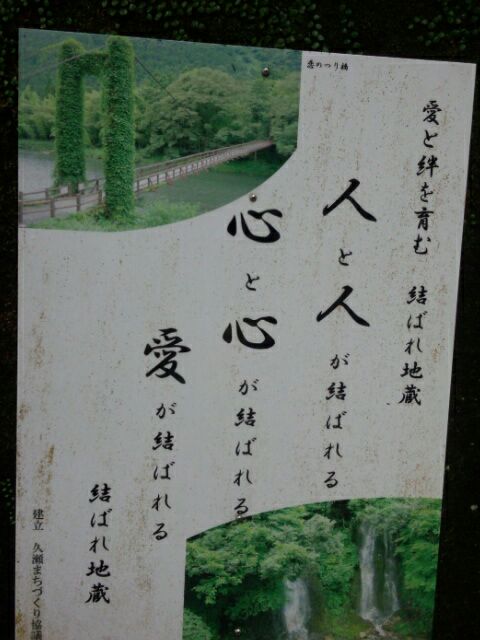 恋のつり橋
愛と絆を育む 結ばれ地蔵
人と人が結ばれる
心と心が結ばれる
愛が結ばれる
結ばれ地蔵
建立 久瀬まちづくり協議